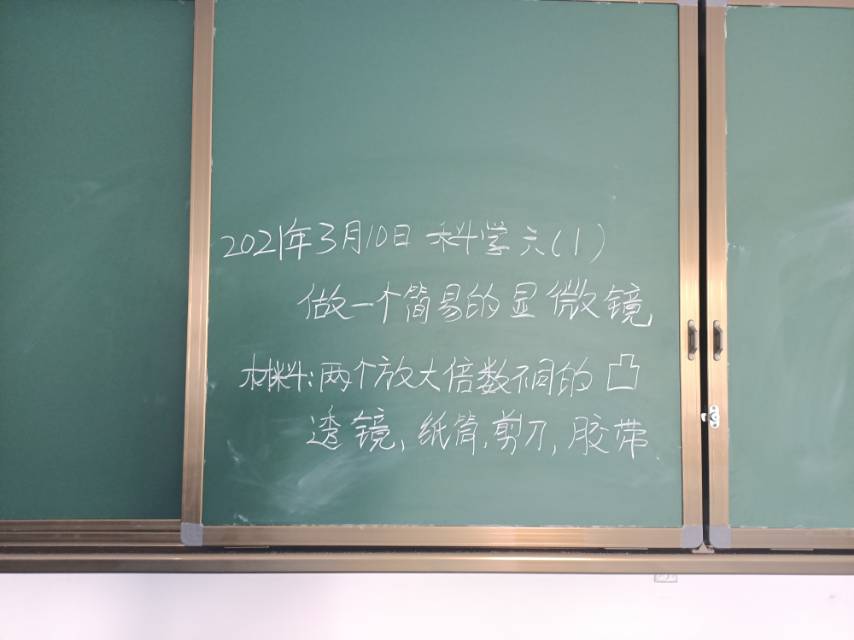 2021年3月10日 科学六(1)
做一个简易的显微镜
材料:两个放大倍数不同的凸
透镜、纸筒、剪刀、胶带